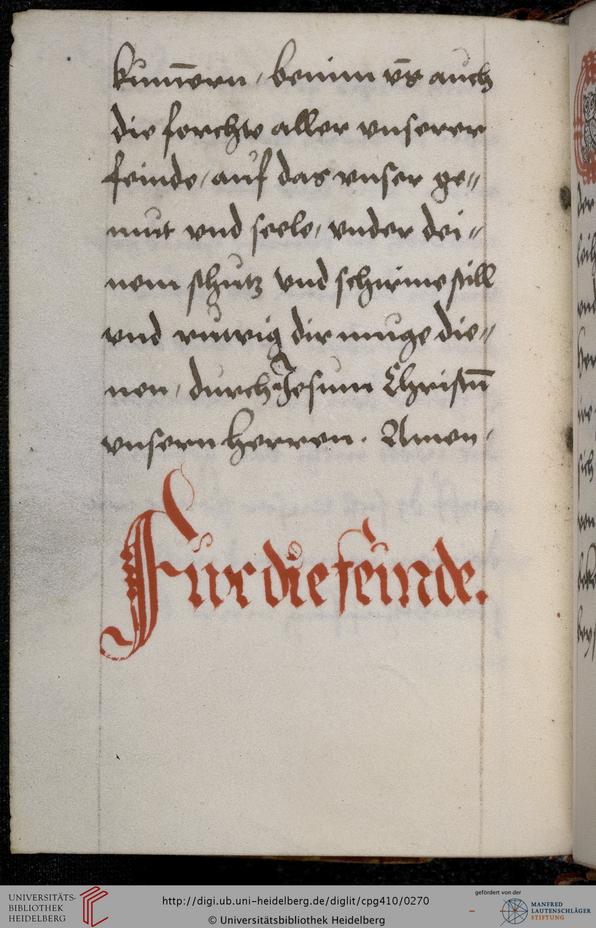 kum̄ern / benim vn̄s auch
die forchte aller vnserer
feinde / auf das vnser ge//
mut vnd seele / vnder dei//
nem schutz vnd schirme still
vnd ruwig dir muge die//
nen / durch Jesum Christū
vnsern herren. Amen.
Fur die feinde.
UNIVERSITÄTS-
BIBLIOTHEK
HEIDELBERG
http://digi.ub.uni-heidelberg.de/diglit/cpg410/0270
© Universitätsbibliothek Heidelberg
gefördert von der
MANFRED
LAUTENSCHLÄGER
STIFTUNG